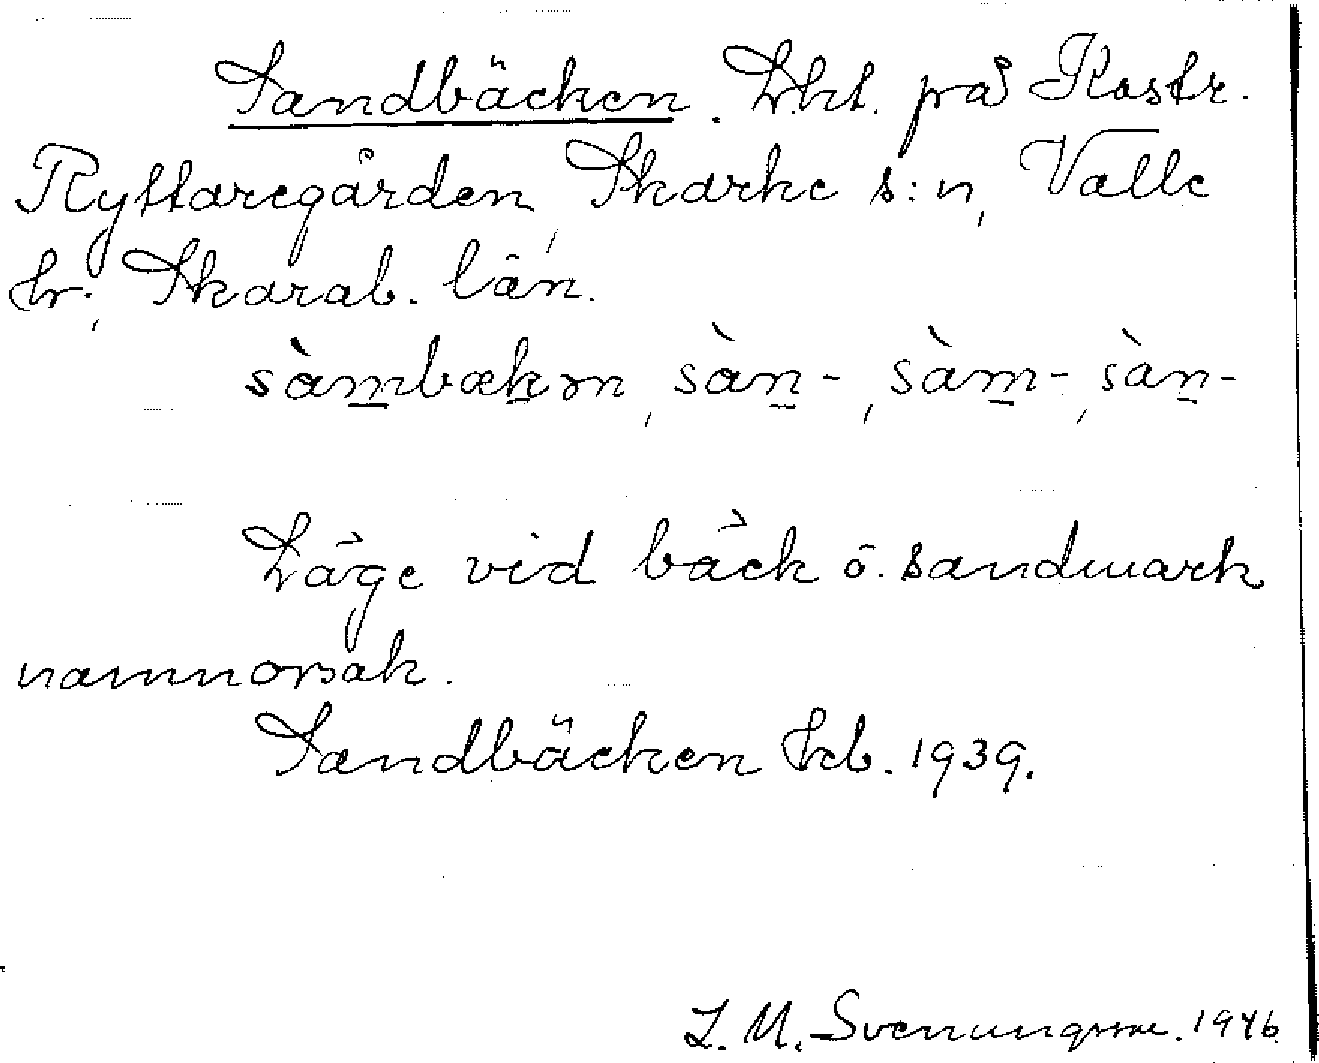 Sandbäcken. Lht. på Kostr.
Ryttaregården, Skarke s:n, Valle
hr; Skarab. län.
sàmbækən, sàn-, sàm-, sàn-
Läge vid bäck o. sandmark
namnorsak.
Sandbäcken hb. 1939.
L. M. Svenungsson. 1946